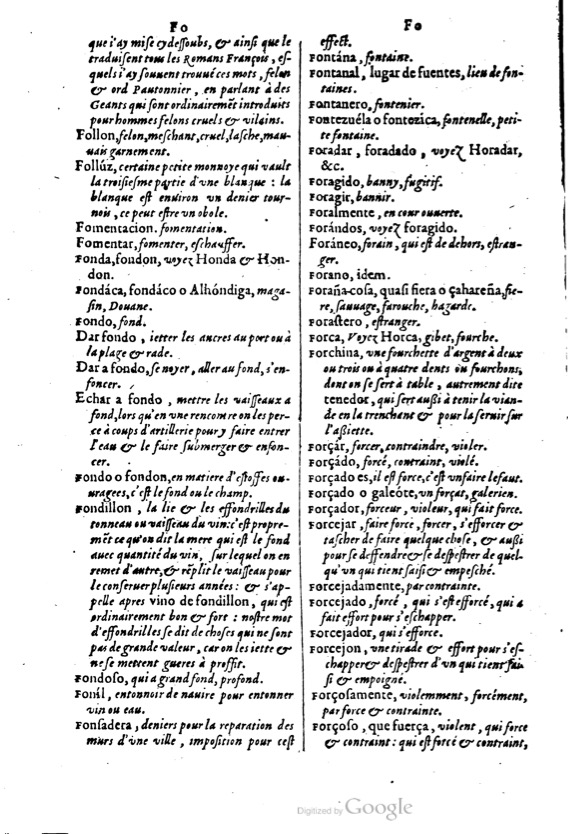 FO
que i'ay mise cy dessoubs, & ainsi que le
traduisent tous les Romans François, es-
quels i'ay souuent trouué ces mots, felon
& ord Pautonnier, en parlant à des
Geants qui sont ordinairemẽt introduits
pour hommes felons cruels & vilains.
Follon, felon, meschant, cruel, lasche, mau-
uais garnement.
Follúz, certaine petite monnoye qui vault
la troisiesme partie d'vne blanque : la
blanque est enuiron vn denier tour-
nois, ce peut estre vn obole.
Fomentacion. fomentation.
Fomentar, fomenter, eschauffer.
Fonda, fondon, voyez Honda & Hon-
don.
Fondáca, fondáco o Alhóndiga, maga-
sin, Douane.
Fondo, fond.
Dar fondo, ietter les ancres au port ou à
la plage & rade.
Dar a fondo, se noyer, aller au fond, s'en-
foncer.
Echar a fondo, mettre les vaisseaux a
fond, lors qu'en vne rencontre on les per-
ce à coups d'artillerie pour y faire entrer
l'eau & le faire submerger & enfon-
cer.
Fondo o fondon, en matiere d'estoffes ou-
uragees, c'est le fond ou le champ.
Fondillon, la lie & les effondrilles du
tonneau ou vaisseau du vin: c'est propre-
mẽt ce qu'on dit la mere qui est le fond
auec quantité du vin, sur lequel on en
remet d'autre, & rẽplit le vaisseau pour
le conseruer plusieurs années : & s'ap-
pelle apres vino de fondillon, qui est
ordinairement bon & fort : nostre mot
d'effondrilles se dit de choses qui ne sont
pas de grande valeur, car on les iette &
ne se mettent gueres à proffit.
Fondoso, qui a grand fond, profond.
Foníl, entonnoir de nauire pour entonner
vin ou eau.
Fonsadera, deniers pour la reparation des
murs d'vne ville, imposition pour cest
FO
effect.
Fontána, fontaine.
Fontanal, lugar de fuentes, lieu de fon-
taines.
Fontanero, fontenier.
Fontezuéla o fontezica, fontenelle, peti-
te fontaine.
Foradar, foradado, voyez Horadar,
&c.
Foragido, banny, fugitif.
Foragir, bannir.
Foralmente, en cour ouuerte.
Forándos, voyez foragido.
Foráneo, forain, qui est de dehors, estran-
ger.
Forano, idem.
Foraña cosa, quasi fiera o çahareña, fie-
re, sauuage, farouche, hagarde.
Forastero, estranger.
Forca, Voyez Horca, gibet, fourche.
Forchina, vne fourchette d'argent à deux
ou trois ou à quatre dents ou fourchons,
dont on se sert à table, autrement dite
tenedor, qui sert außi à tenir la vian-
de en la trenchant & pour la seruir sur
l'aßiette.
Forçár, forcer, contraindre, violer.
Forçádo, forcé, contraint, violé.
Forçado es, il est force, c'est vn faire le faut.
Forçado o galeóte, vn forçat, galerien.
Forçador, forceur, violeur, qui fait force.
Forcejar, faire force, forcer, s'efforcer &
tascher de faire quelque chose, & außi
pour se deffendre & se despestrer de quel-
qu'vn qui tient saisi & empesché.
Forcejadamente, par contrainte.
Forcejado, forcé, qui s'est efforcé, qui a
fait effort pour s'eschapper.
Forcejador, qui s'efforce.
Forcejon, vne tirade & effort pour s'es-
chapper & despestrer d'vn qui tient sai-
si & empoigné.
Forçosamente, violemment, forcément,
par force & contrainte.
Forçoso, que fuerça, violent, qui force
& contraint : qui est forcé & contraint,
Digitized by Google